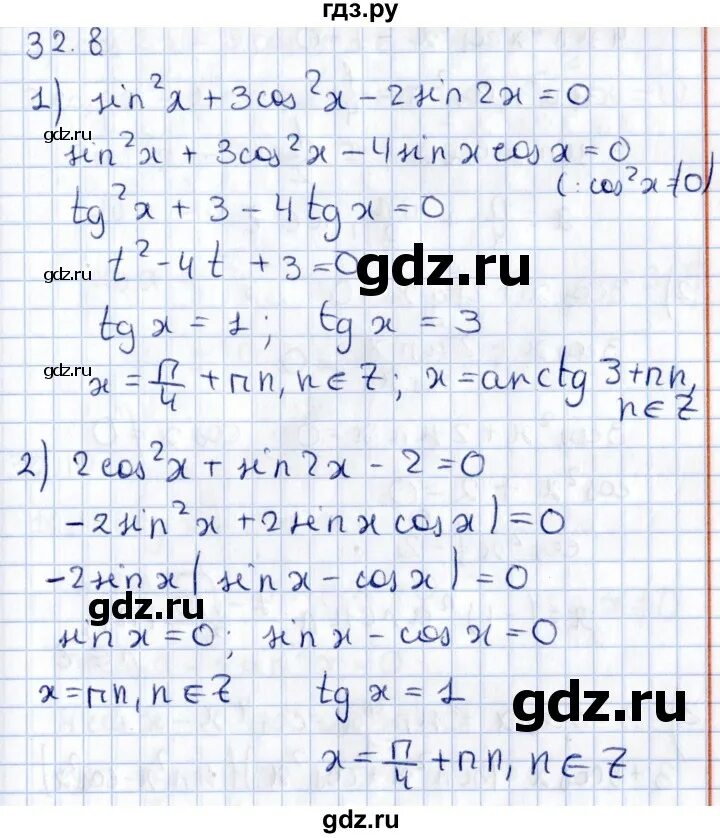 гдз.ру
32.8
1) sin²x + 3cos²x - 2sin2x = 0
gdz.ru
sin²x + 3cos²x - 4sinx cosx = 0
(: cos²x ≠ 0)
tg²x + 3 - 4tgx = 0
gdz.ru t² - 4t + 3 = 0 gdz.ru
tgx = 1; tgx = 3
gdz.ru
x = π/4 + πn, n ∈ Z; x = arctg 3 + πn,
n ∈ Z
2) 2cos²x + sin2x - 2 = 0
-2sin²x + 2sinx cosx) = 0
-2sinx(sinx - cosx) = 0
gdz.ru
sinx = 0; sinx - cosx = 0
x = πn, n ∈ Z tgx = 1
gdz.ru
x = π/4 + πn, n ∈ Z
gdz.ru